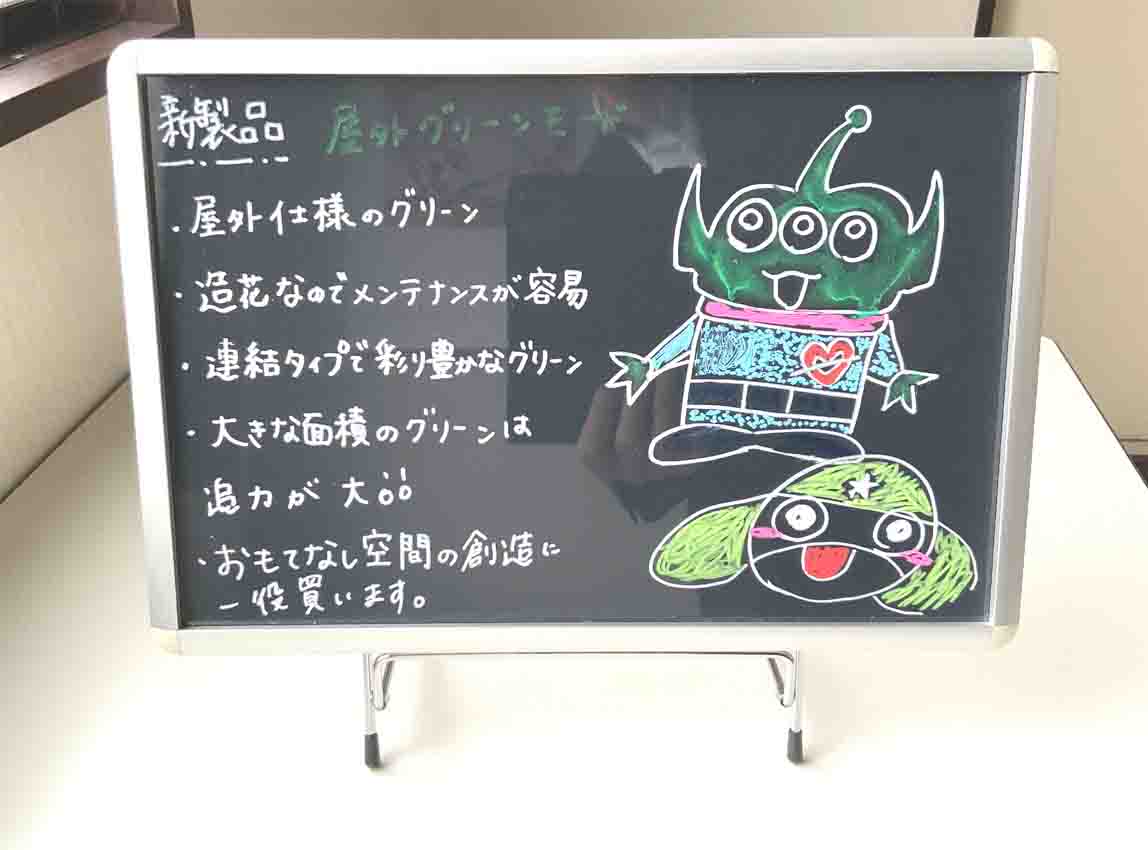 新製品 屋外グリーン
・屋外仕様のグリーン
・造花なのでメンテナンスが容易
・連結タイプで彩り豊かなグリーン
・大きな面積のグリーンは
追力が大
・おもてなし空間の創造に
一役買います。